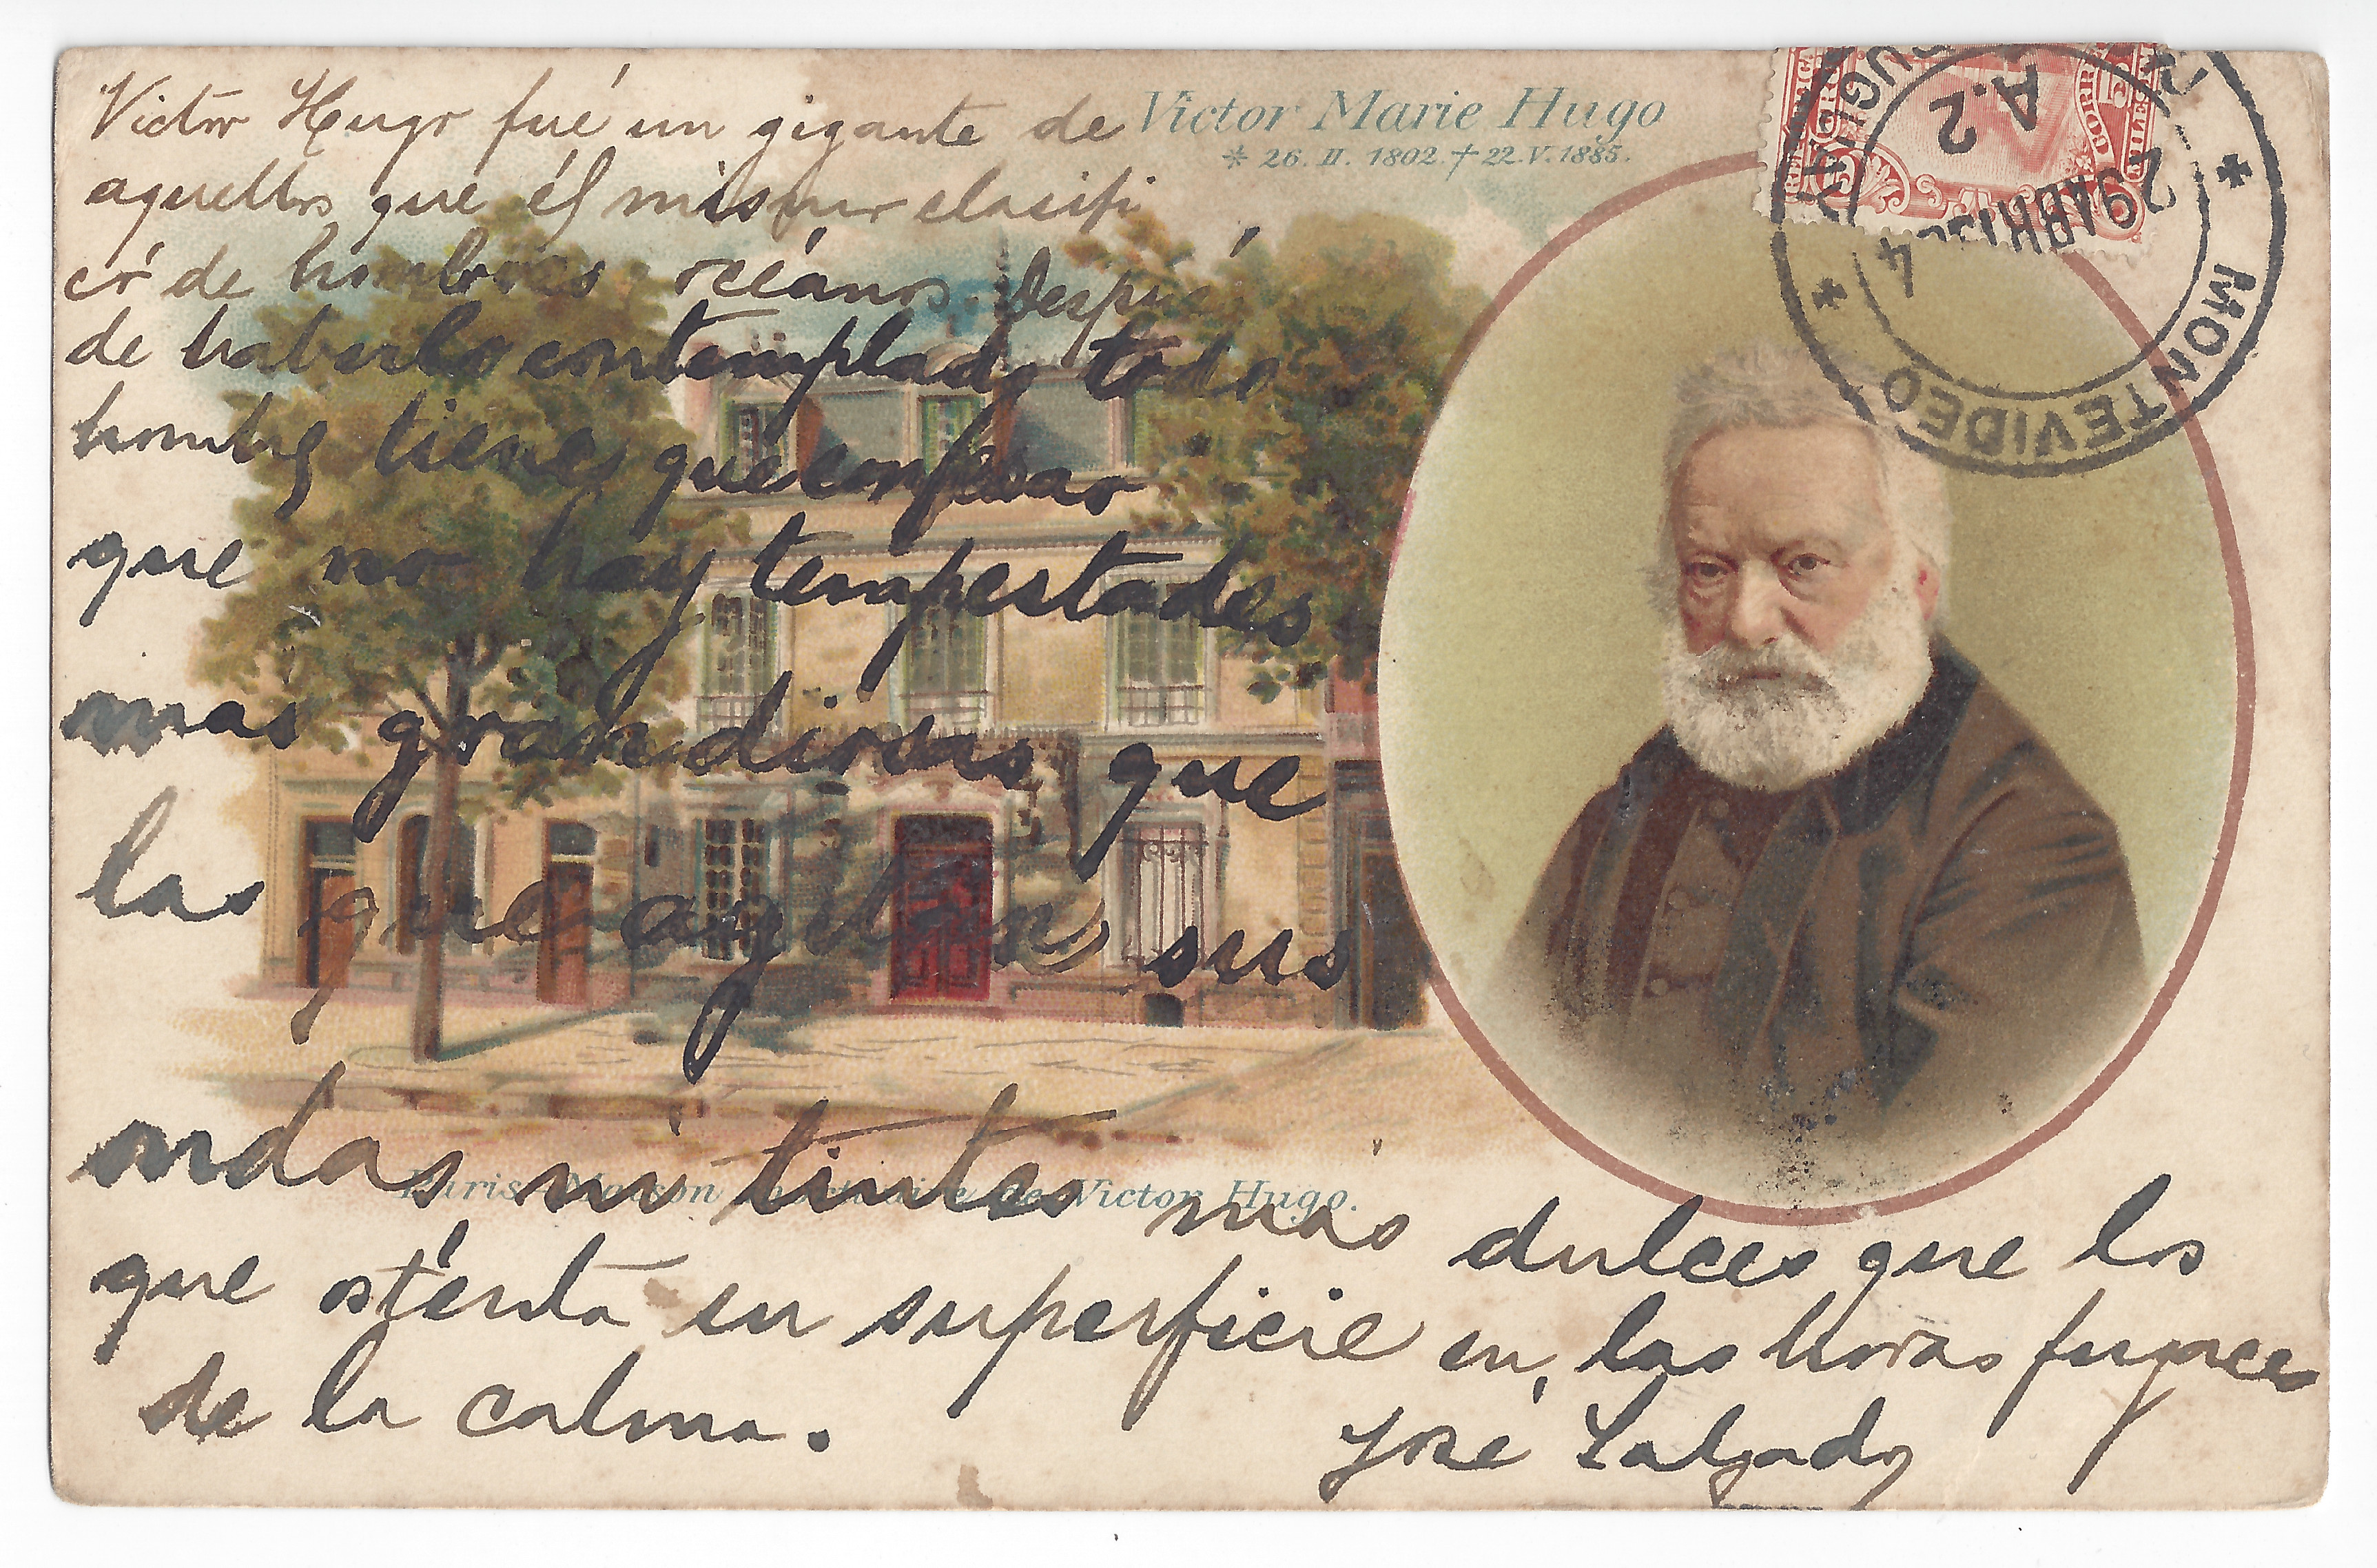 Victor Hugo fué un gigante de
aquellos que él mismo clasifi
có de hombres océanos. Después
de haberlo contemplado todo
hombre tiene que confesar
que no hay tempestades
mas grandiosas que
las que agitan sus
ondas ni tintes mas dulces que los
que osténta su superficie en las horas fugaces
de la calma.
José Salgado
Victor Marie Hugo
* 26. II. 1802. † 22. V. 1885.
Paris Maison de Victor Hugo.
MONTEVIDEO
A.2
29 ABR
4
5